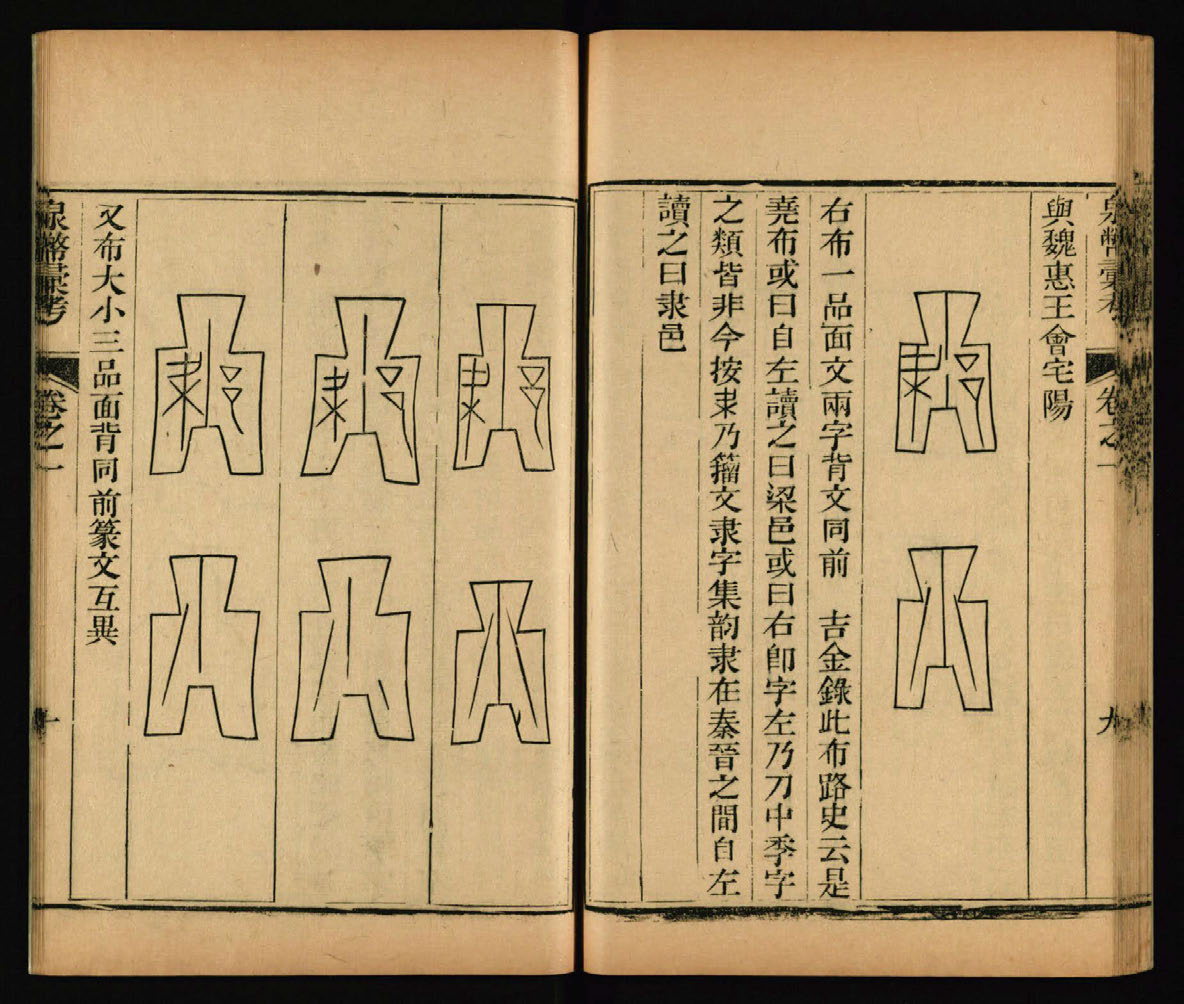 泉幣彙考 卷之一 九
與魏惠王會宅陽
右布一品面文兩字背文同前　吉金錄此布路史云是
堯布或曰自左讀之曰梁邑或曰右卽字左乃刀中季字
之類皆非今按隶乃籀文隶字集韵隶在秦晉之間自左
讀之曰隶邑
又布大小三品面背同前篆文互異
泉幣彙考 卷之一